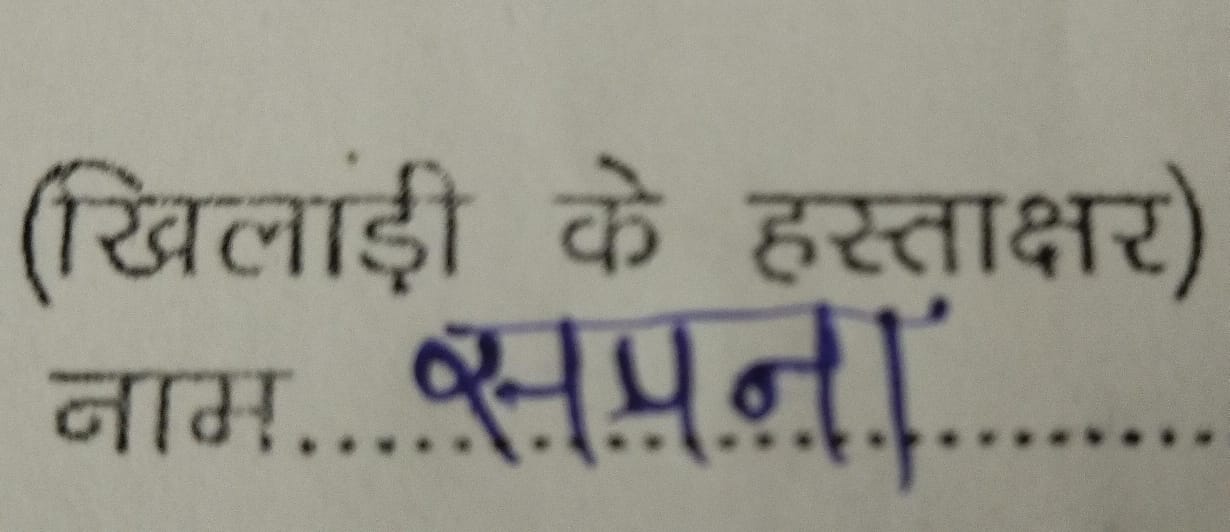 (खिलाड़ी के हस्ताक्षर)
नाम.... सपना ..........